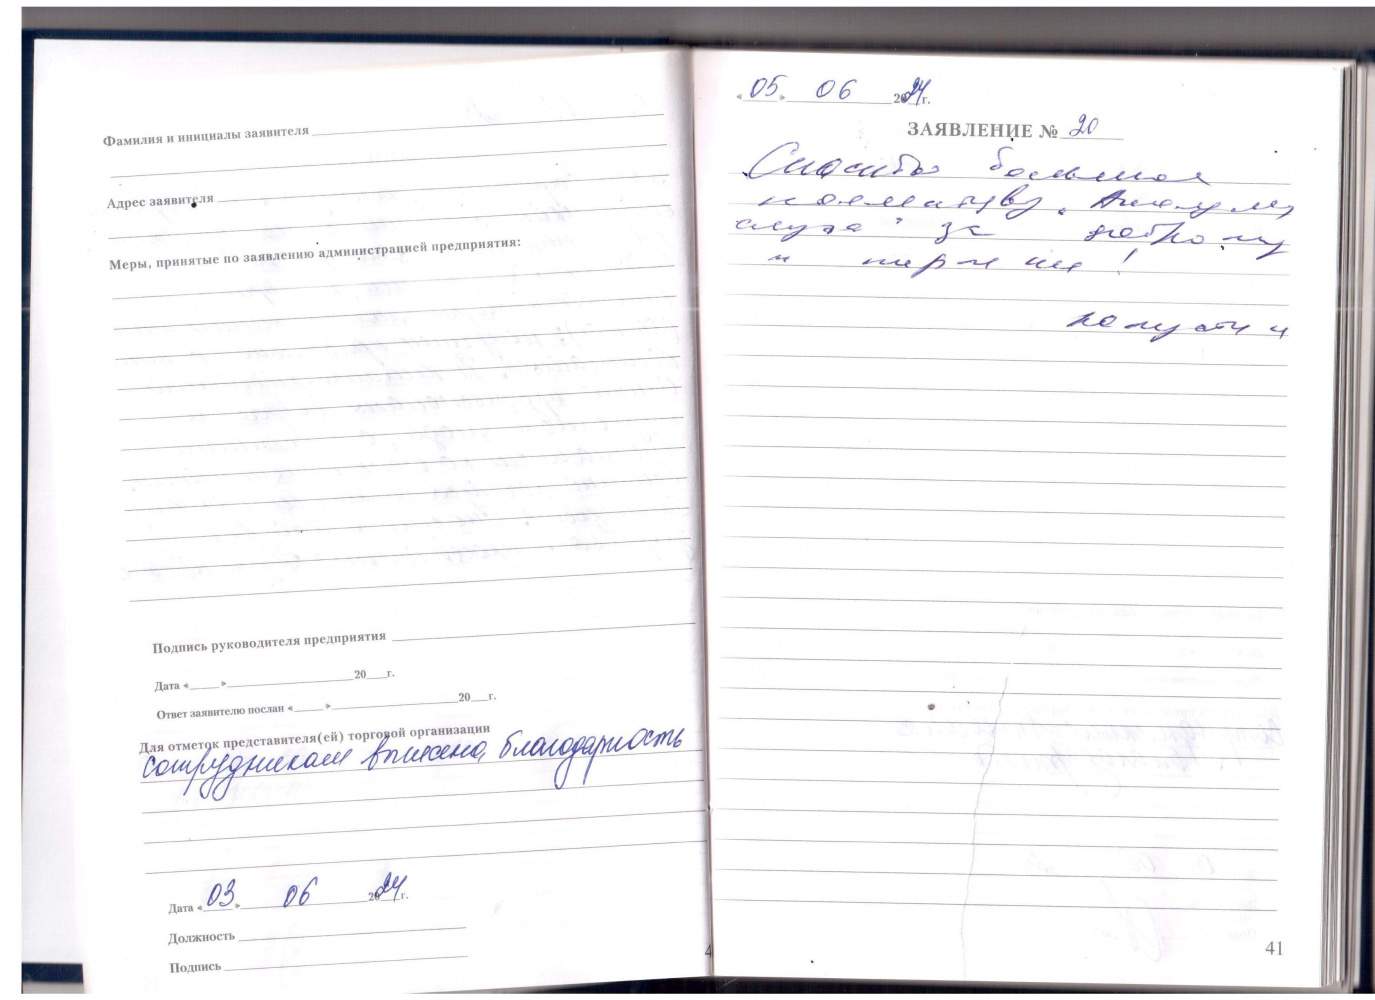 Фамилия и инициалы заявителя
Адрес заявителя
Меры, принятые по заявлению администрацией предприятия:
Подпись руководителя предприятия
Дата «____»____20___г.
Ответ заявителю послан «____»____20___г.
Для отметок представителя(ей) торговой организации
сотрудникам внесена благодарность
Дата «03» 06 2024г.
Должность
Подпись
4
«05» 06 2024г.
ЗАЯВЛЕНИЕ № 20
Спасибо большое
коллективу
слуха" за доброту
и терпение!
41